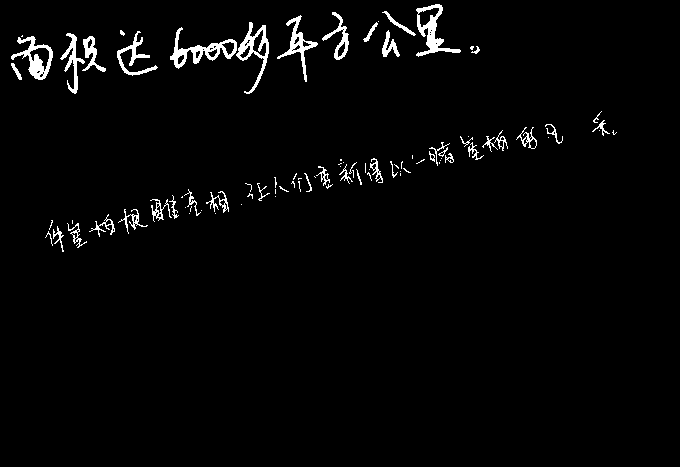 面积达6000多平方公里。
件崖柏根雕亮相,让人们重新得以一睹崖柏的风采。